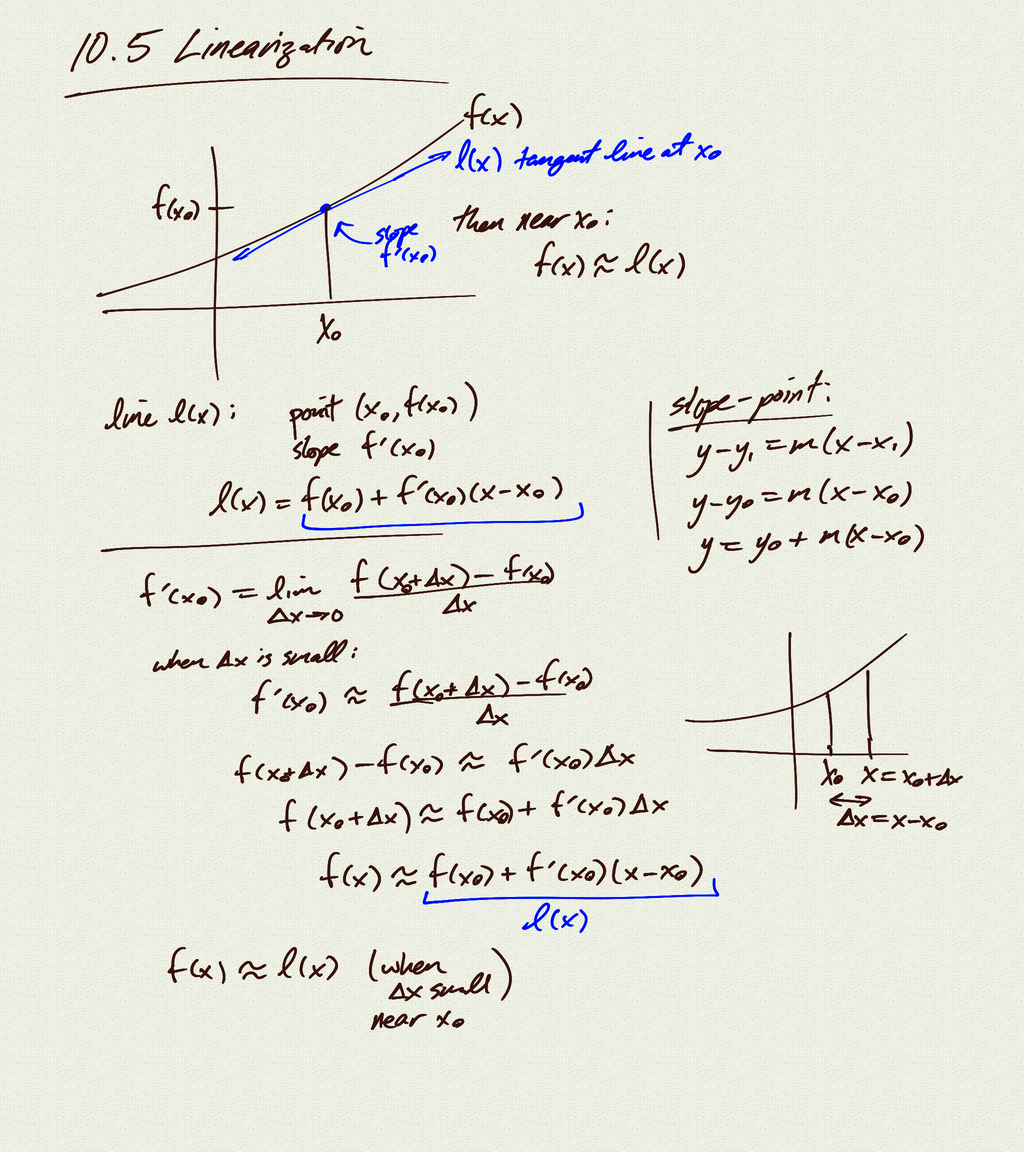 10.5 Linearization
f(x)
l(x) tangent line at x₀
f(x₀)
slope
f'(x₀)
then near x₀:
f(x) ≈ l(x)
x₀
line l(x): point (x₀, f(x₀))
slope f'(x₀)
l(x) = f(x₀) + f'(x₀)(x-x₀)
slope-point:
y-y₁ = m(x-x₁)
y-y₀ = m(x-x₀)
y = y₀ + m(x-x₀)
f'(x₀) = lim Δx→0 (f(x₀+Δx) - f(x₀)) / Δx
when Δx is small:
f'(x₀) ≈ (f(x₀+Δx) - f(x₀)) / Δx
f(x₀+Δx) - f(x₀) ≈ f'(x₀)Δx
f(x₀+Δx) ≈ f(x₀) + f'(x₀)Δx
f(x) ≈ f(x₀) + f'(x₀)(x-x₀)
l(x)
x₀ x = x₀+Δx
Δx = x-x₀
f(x) ≈ l(x) (when
Δx small)
near x₀